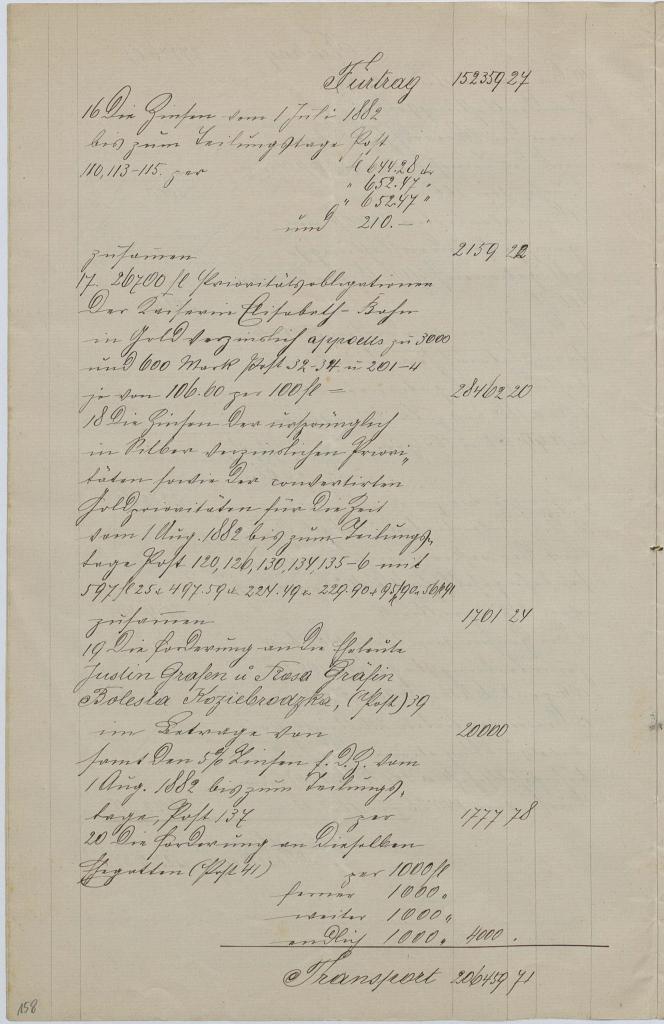 Fürtrag 152359 27
16 Die Zinsen vom 1 Juli 1882
bis zum Teilungstage Post
110, 113-115. per fl 644.28 kr
" 652.47 "
" 652.47 "
und 210.— "
zusammen 2159 22
17. 26700 fl Prioritätsobligationen
der Kaiserin Elisabeth-Bahn
in Gold verzinslich appoells zu 3000
und 600 Mark Post 32-34 u 201-4
je von 106.60 per 100 fl = 28462 20
18 Die Zinsen der ursprünglich
in Silber verzinslichen Priori„
täten sowie der convertirten
Goldprioritäten für die Zeit
vom 1 Aug. 1882 bis zum Teilungs„
tage Post 120, 126, 130, 134, 135-6 mit
597 fl 25 497.59 224.49 229.90
zusammen 1701 24
19 Die Forderung an die Eheleute
Justin Grafen u Rosa Gräfin
Bolesta Koziebrodzka, (Post) 39
im Betrage von 20000
samt den 5% Zinsen f. d. Z. vom
1 Aug. 1882 bis zum Teilungs„
tage, Post 137 per 1777 78
20 Die Forderung an dieselben
Ehegatten (Post 41) per 1000 fl
ferner 1000 "
weiter 1000 "
endlich 1000 " 4000 .
Transport 206459 71
158